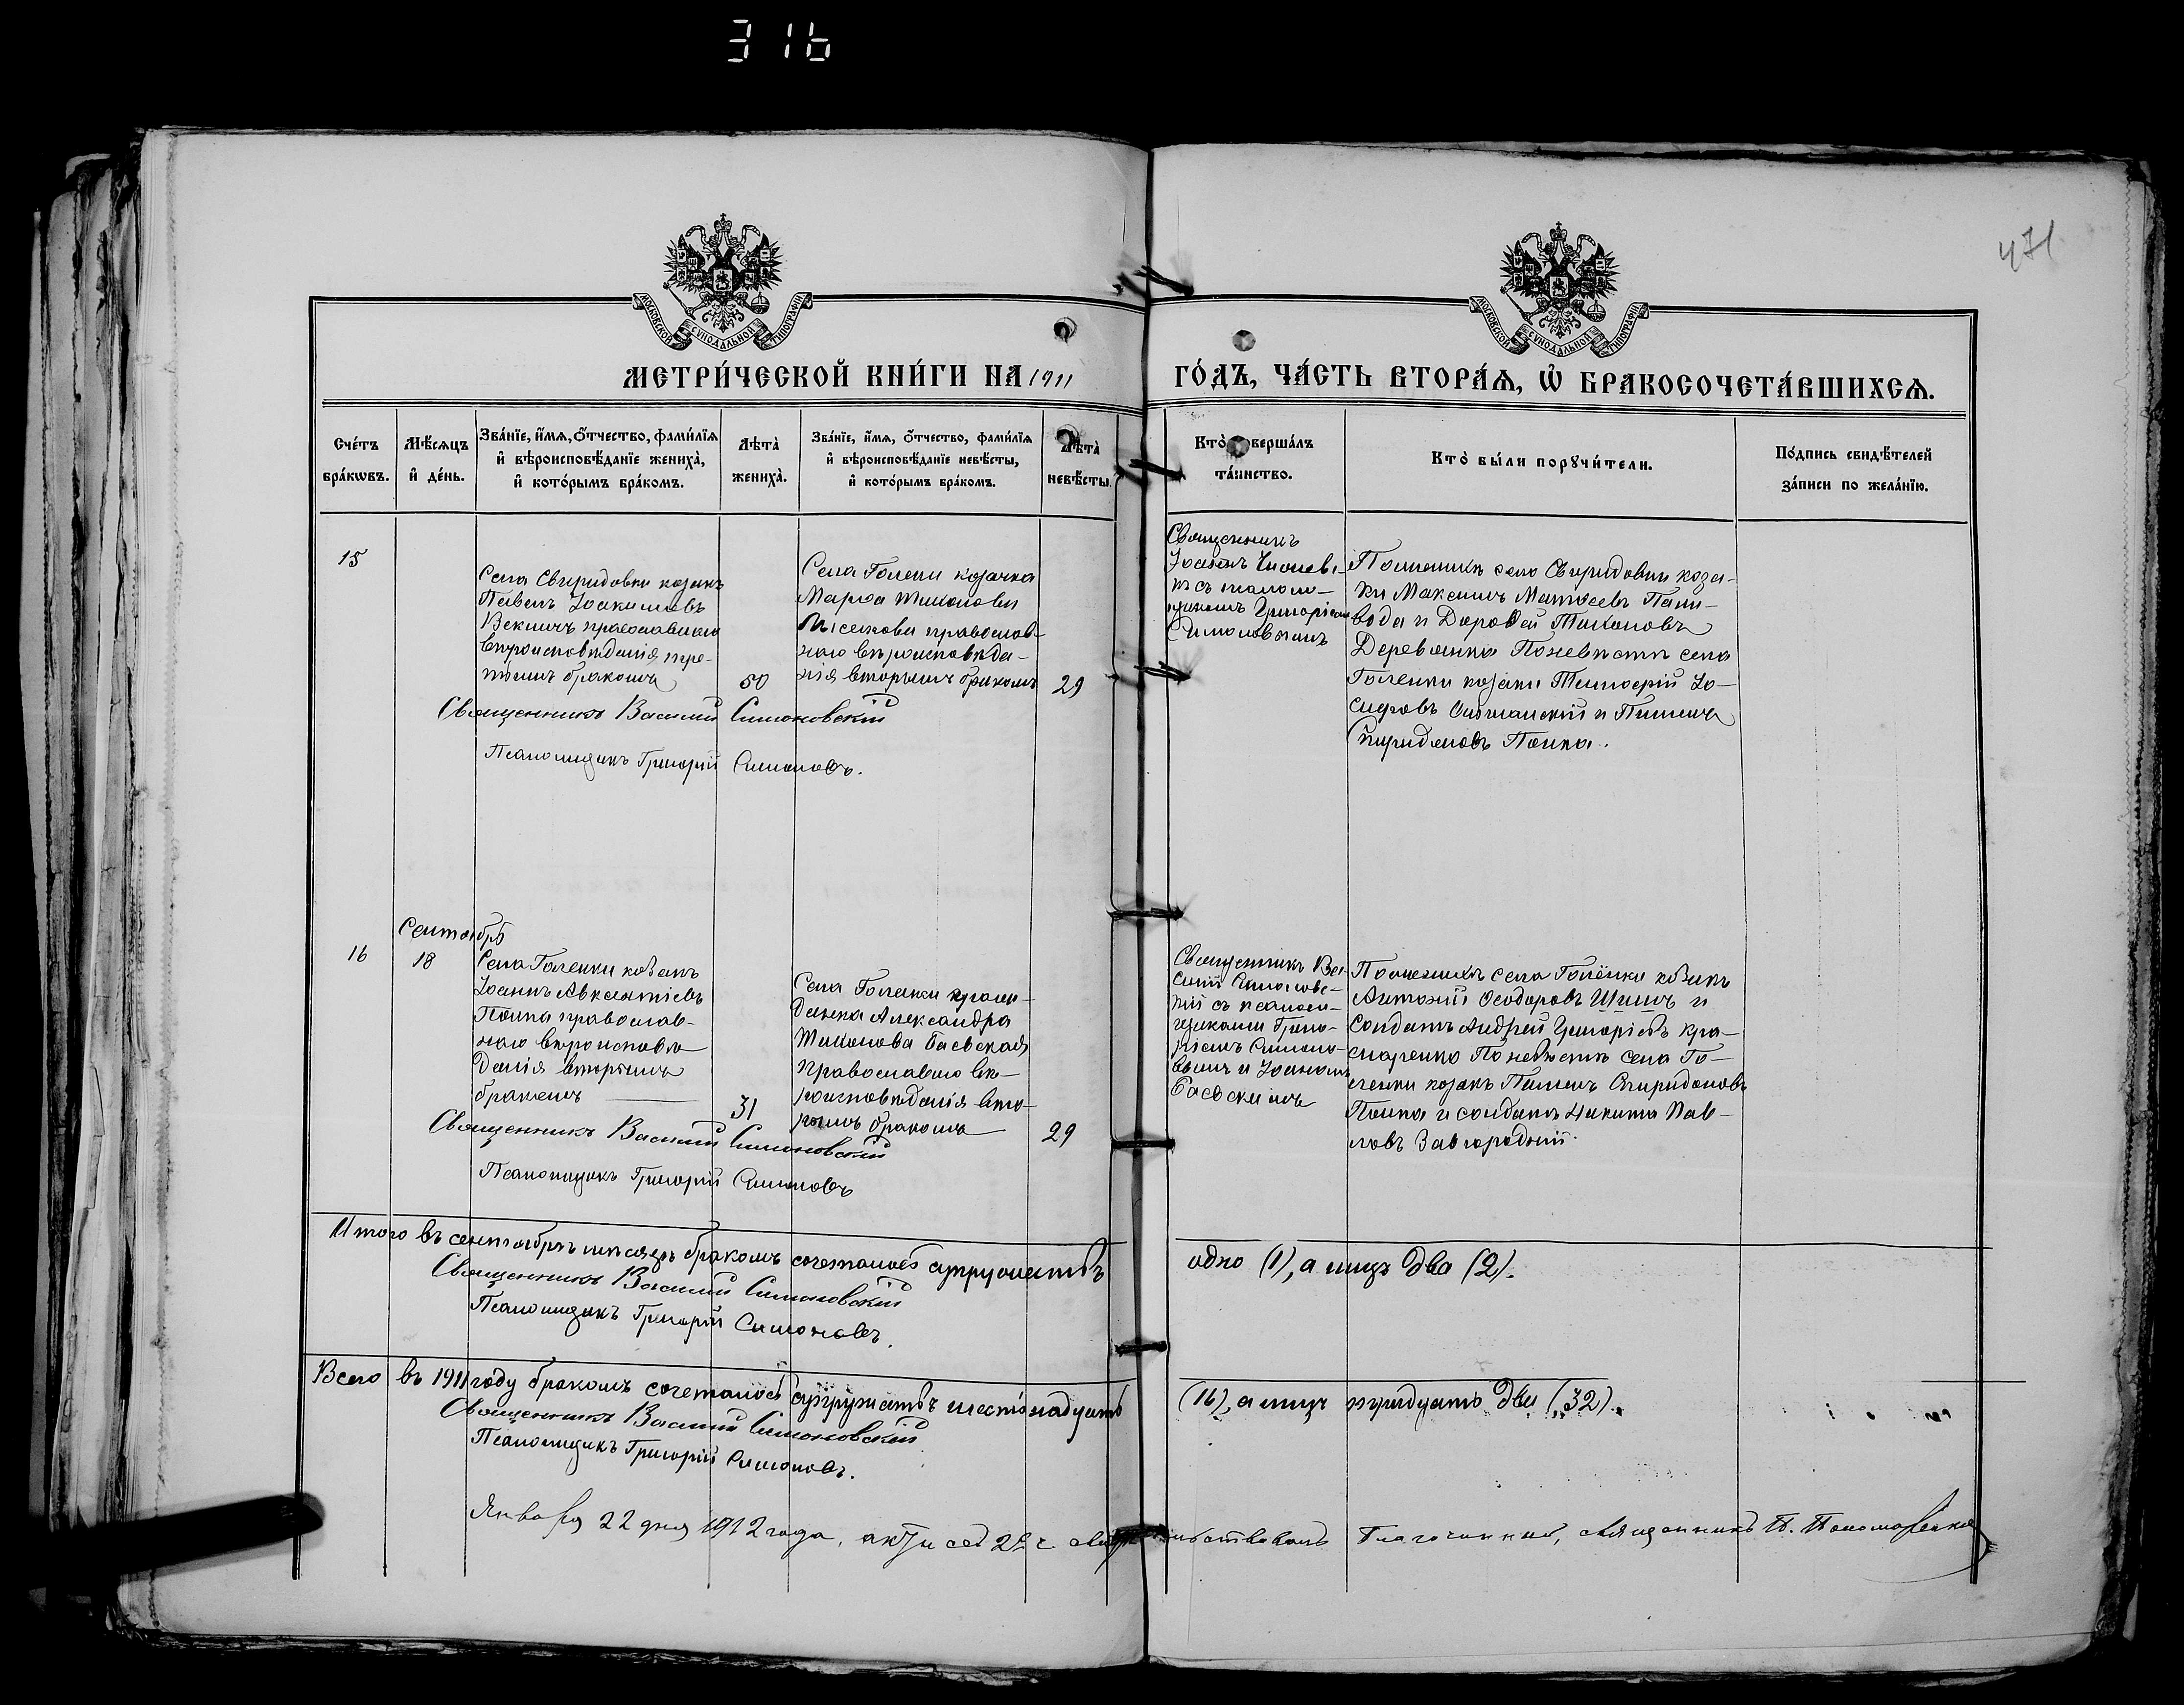 316
471
МОСКОВСКОЙ СУНОДАЛЬНОЙ ТИПОГРАФІИ
МОСКОВСКОЙ СУНОДАЛЬНОЙ ТИПОГРАФІИ
МЕТРИ́ЧЕСКОЙ КНИ́ГИ НА 1911 ГО́ДЪ, ЧА́СТЬ ВТОРА́Ѧ, Ѽ БРАКОСОЧЕТА́ВШИХСѦ.
Сче́тъ бра́кѡвъ.
Мѣ́сѧцъ и҆ де́нь.
Зва́нїе, и҆́мѧ, ѻ҆́тчество, фами́лїѧ и҆ вѣроисповѣ́данїе жениха̀, и҆ кото́рымъ бра́комъ.
Лѣта̀ жениха̀.
Зва́нїе, и҆́мѧ, ѻ҆́тчество, фами́лїѧ и҆ вѣроисповѣ́данїе невѣ́сты, и҆ кото́рымъ бра́комъ.
Лѣта̀ невѣ́сты.
Кто̀ совершалъ та́инство.
Кто̀ бы́ли порꙋчи́тели.
По́дпись свидѣ́телей за́писи по жела́нїю.
15
Села Свиридовки козакъ
Павелъ Іоакимовъ
Векличъ православнаго
вѣроисповѣданія, тре-
тьимъ бракомъ
50
Села Голенки козачка
Марѳа Тихонова
православ-
наго вѣроисповѣда-
нія вторымъ бракомъ
29
Священникъ
Іоаннъ
съ псалом-
щикомъ Григоріемъ
Симоновымъ
По женихѣ села Свиридовки коза-
ки Максимъ Матѳеевъ Пали-
вода и Дороѳей Тихоновъ
Деревянка По невѣстѣ села
Голенки козаки Тимоѳей Іо-
сифовъ и Пименъ
Спиридоновъ Попка.
Священникъ Василій Симоновскій
Псаломщикъ Григорій Симоновъ.
Сентябрь
16
18
Села Голенки козакъ
Іоаннъ Авксентіевъ
Попка православ-
наго вѣроисповѣ-
данія вторымъ
бракомъ
31
Села Голенки граж-
данка Александра
Тихонова Баевская
православнаго вѣ-
роисповѣданія вто-
рымъ бракомъ
29
Священникъ Ва-
силій Симоновс-
кій съ псалом-
щиками Григо-
ріемъ Симоно-
вымъ и Іоанномъ
Баевскимъ
По женихѣ села Голенки козакъ
Антоній Ѳеодоровъ и
солдатъ Андрей Григорьевъ Кра-
снаренко По невѣстѣ села Го-
ленки козакъ Пименъ Спиридоновъ
Попка и солдатъ Никита Пав-
ловъ Завгородній.
Священникъ Василій Симоновскій
Псаломщикъ Григорій Симоновъ
Итого въ сентябрѣ мѣсяцѣ бракомъ сочеталось супружествъ одно (1), а лицъ два (2).
Священникъ Василій Симоновскій
Псаломщикъ Григорій Симоновъ.
Всего въ 1911 году бракомъ сочеталось супружествъ шестьнадцать (16), а лицъ тридцать два (32).
Священникъ Василій Симоновскій
Псаломщикъ Григорій Симоновъ.
Января 22 дня 1912 года, акты сей 2й ч. свидѣтельствовалъ Благочинный, священникъ П. Пономаренко